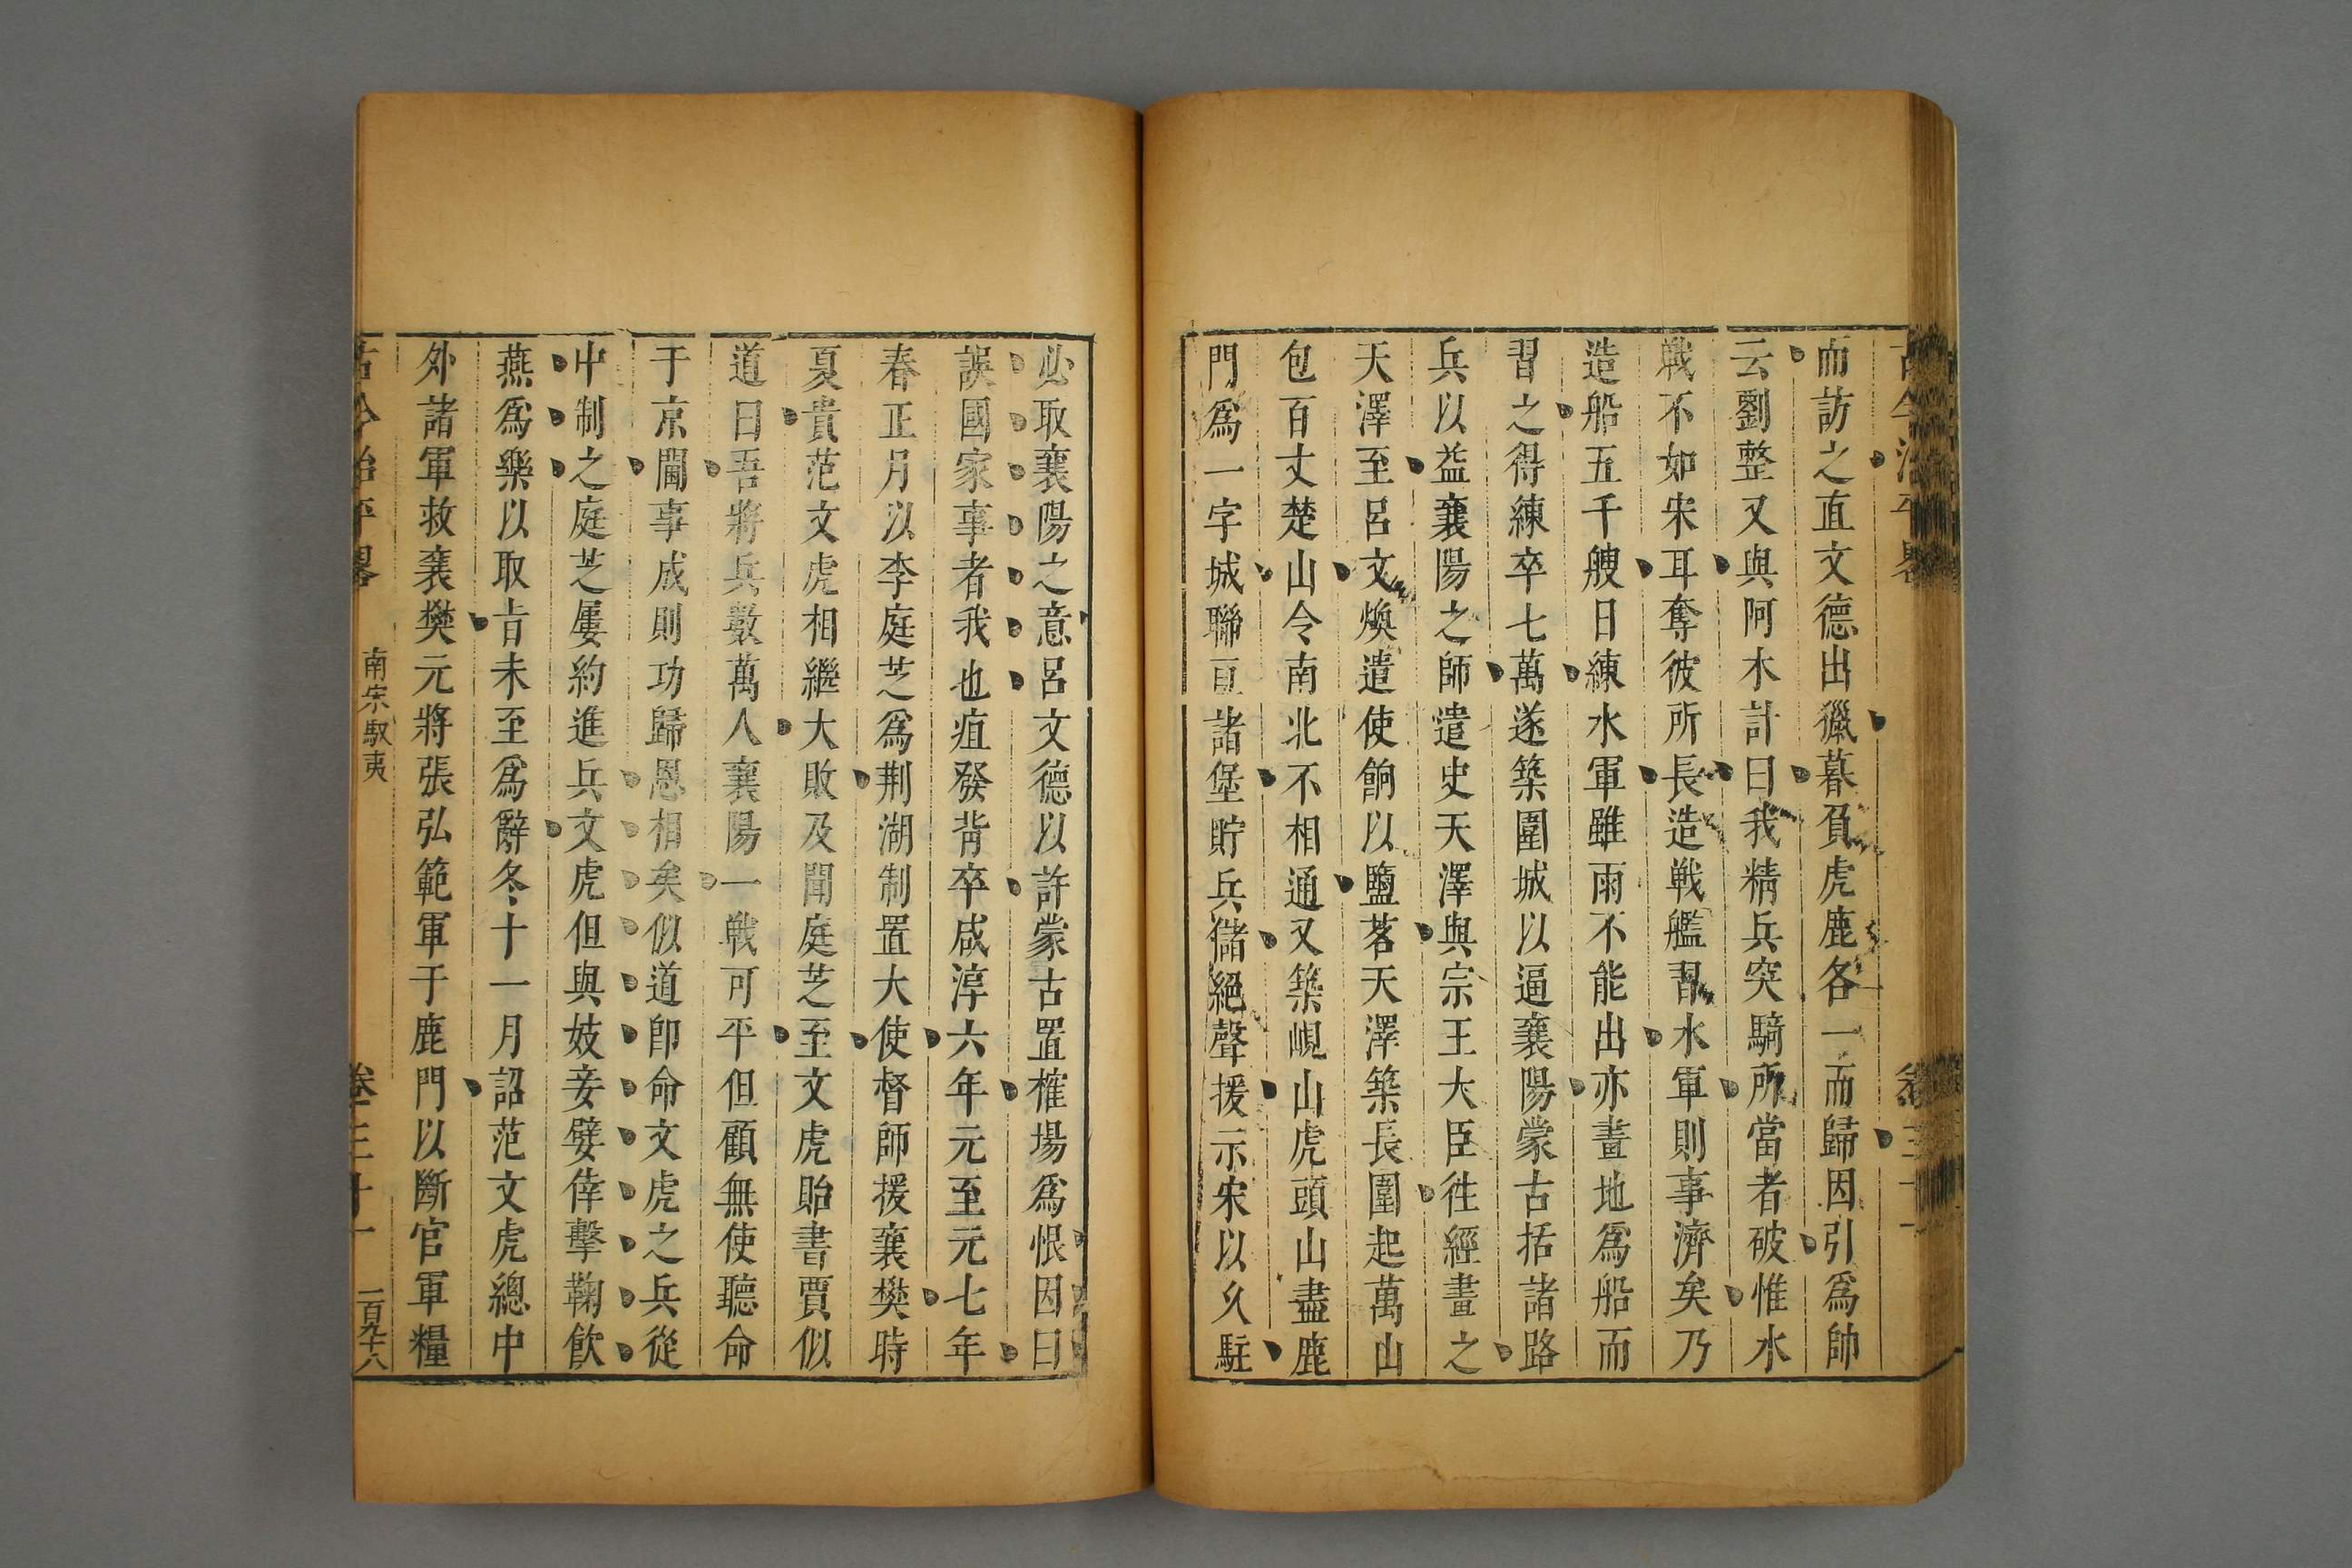 而訪之直文德出獵暮負虎鹿各一而歸因引爲帥
云劉整又與阿木計曰我精兵突騎所當者破惟水
戰不如宋耳奪彼所長造戰艦習水軍則事濟矣乃
造船五千艘日練水軍雖雨不能出亦畫地爲船而
習之得練卒七萬遂築圍城以逼襄陽蒙古括諸路
兵以益襄陽之師遣史天澤與宗王大臣徃經畫之
天澤至呂文煥遣使餉以鹽茗天澤築長圍起萬山
包百丈楚山令南北不相通又築峴山虎頭山盡鹿
門爲一字城聯亘諸堡貯兵儲絕聲援示宋以久駐
必取襄陽之意呂文德以許蒙古置榷場爲恨因曰
誤國家事者我也疽發背卒咸淳六年元至元七年
春正月以李庭芝爲荆湖制置大使督師援襄樊時
夏貴范文虎相繼大敗及聞庭芝至文虎貽書賈似
道曰吾將兵數萬人襄陽一戰可平但願無使聽命
于京閫事成則功歸恩相矣似道卽命文虎之兵從
中制之庭芝屢約進兵文虎但與妓妾嬖倖擊鞠飲
燕爲樂以取旨未至爲辭冬十一月詔范文虎總中
外諸軍救襄樊元將張弘範軍于鹿門以斷官軍糧
古今治平畧 南宋馭夷 卷三十一 一百九十八